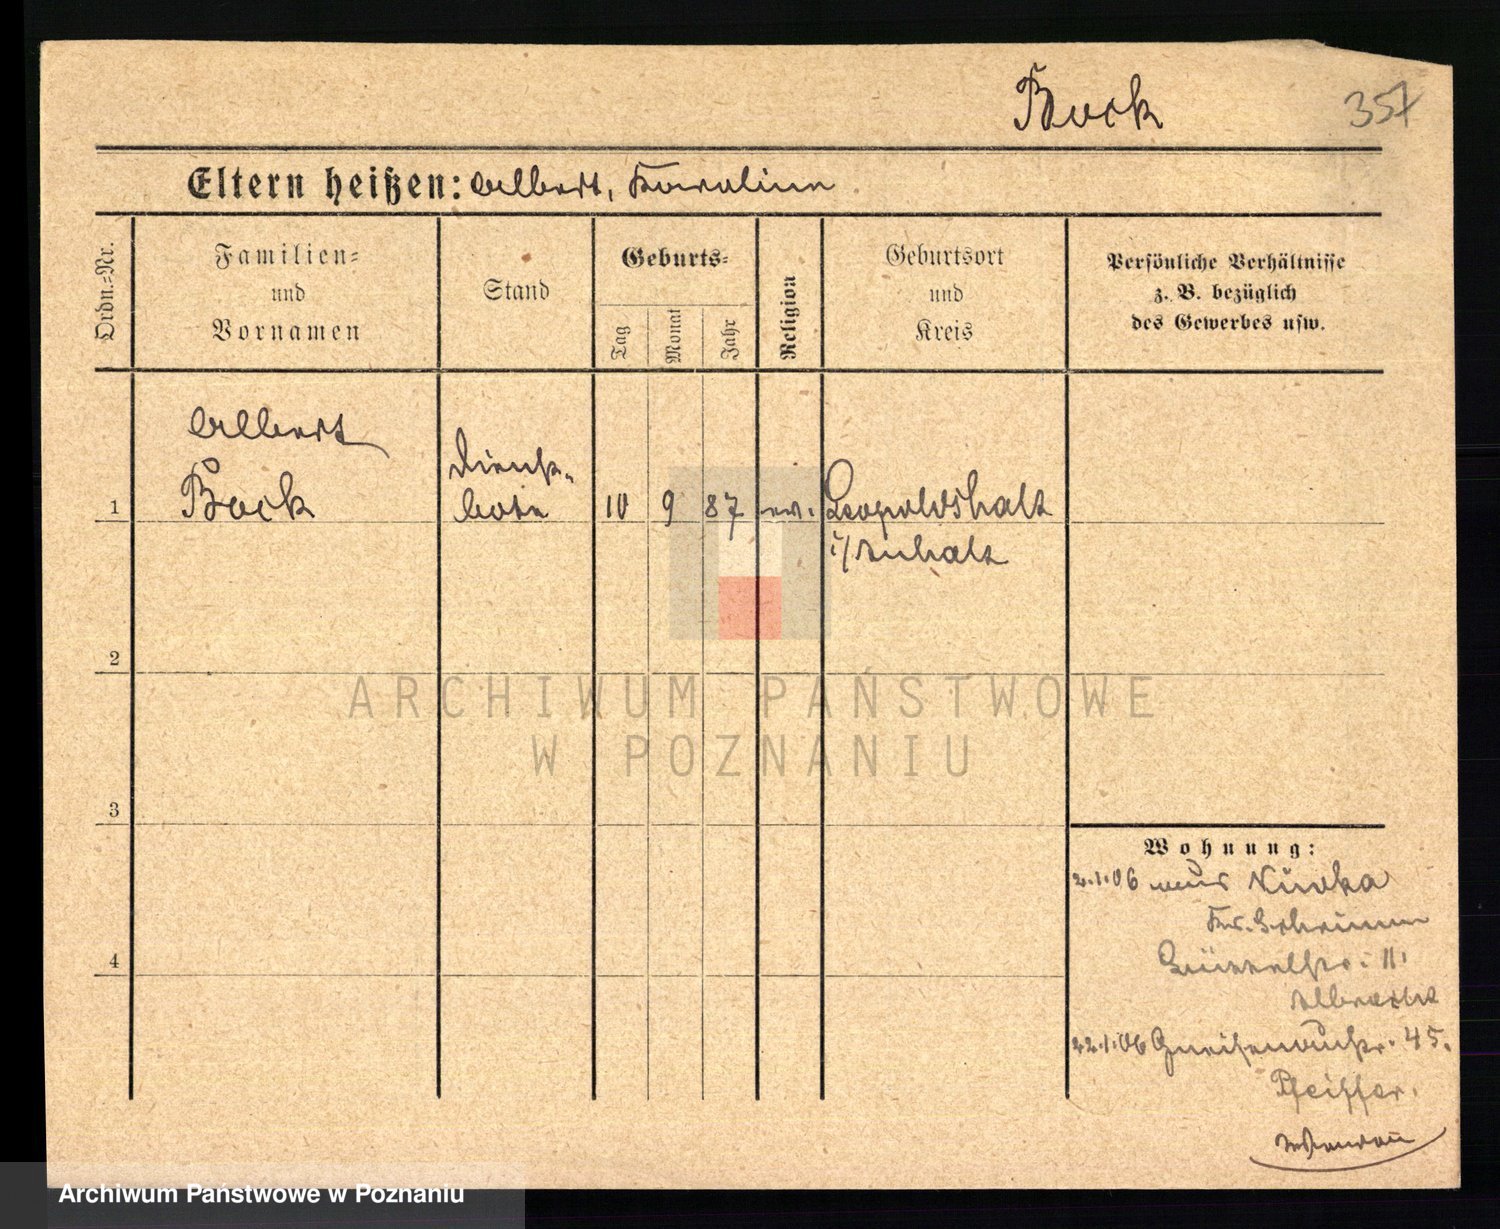 Bock
357
Eltern heißen: Albert, Karoline
Ordn.=Nr.
Familien=
und
Vornamen
Stand
Geburts=
Tag
Monat
Jahr
Religion
Geburtsort
und
Kreis
Persönliche Verhältnisse
z. B. bezüglich
des Gewerbes usw.
Albert
1 Bock
Dienst-
bote
10 9 87 ev. Leopoldshall
i/Anhalt
2
3
4
Wohnung:
2.1.06 aus Xiuzka
Kr. Schrimm
11.
Albrecht
22.1.06 Gneisenaustr. 45.
Pfeiffer.
ARCHIWUM PAŃSTWOWE
W POZNANIU
Archiwum Państwowe w Poznaniu